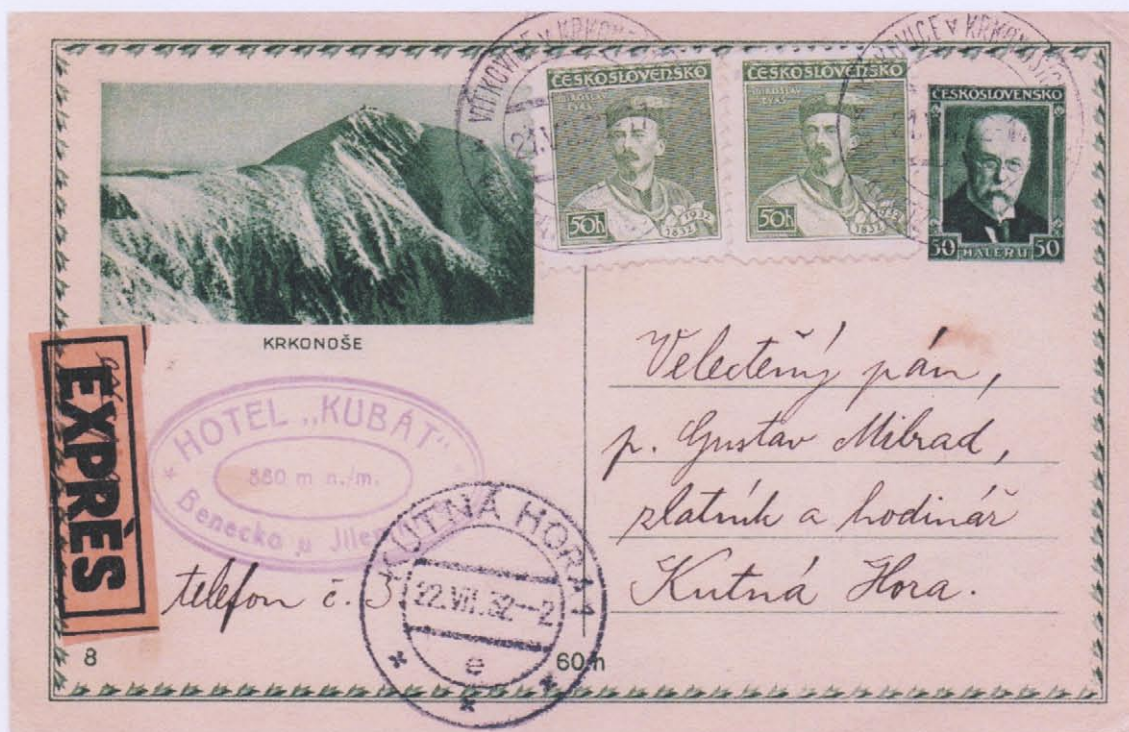 VÍTKOVICE V KRKONOŠÍCH
ČESKOSLOVENSKO
MIROSLAV
TYRŠ
50h
1832
1932
ČESKOSLOVENSKO
MIROSLAV
TYRŠ
50h
1832
1932
VÍTKOVICE V KRKONOŠÍCH
ČESKOSLOVENSKO
50 HALÉŘŮ 50
KRKONOŠE
EXPRÈS
HOTEL „KUBÁT“
880 m n./m.
Benecko p
telefon č. 3.
KUTNÁ HORA 1
22.VII.32.-2
e
8
60 h
Velectěný pán,
p. Gustav Milrad,
zlatník a hodinář
Kutná Hora.